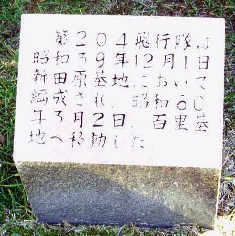 第204飛行隊は
昭和39年12月1日
新田原基地において
編成され、昭和60
年3月2日、百里基
地へ移動した